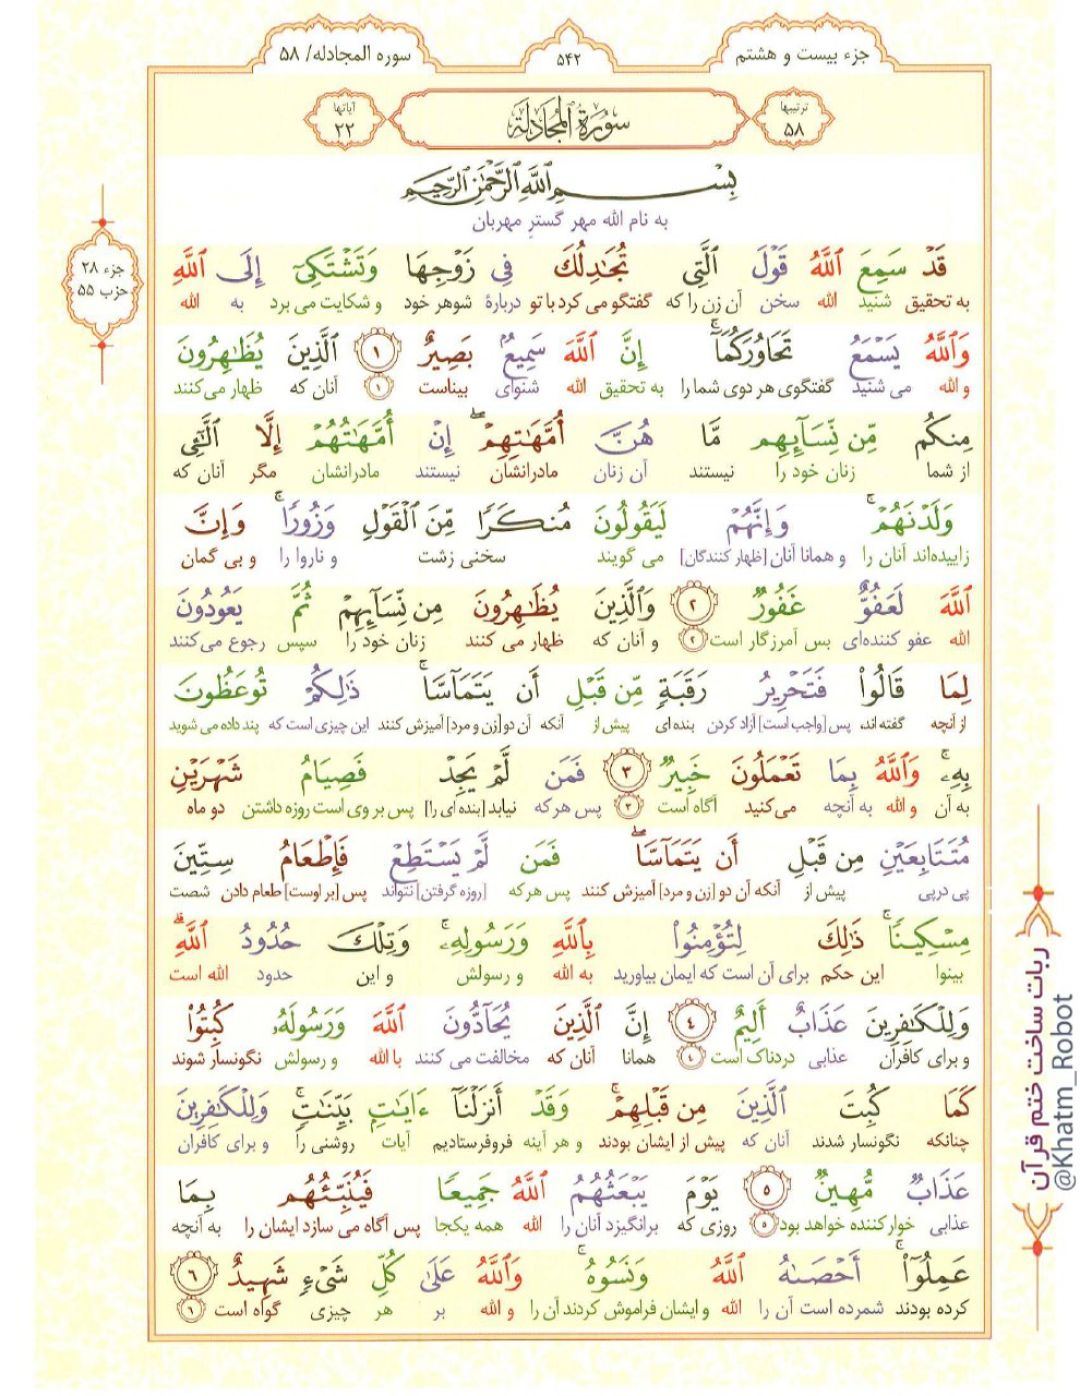 جزء بیست و هشتم
۵۴۲
سوره المجادله/ ۵۸
ترتیبها
۵۸
سُورَةُ ٱلْمُجَادَلَة
آیاتها
۲۲
بِسْمِ ٱللَّهِ ٱلرَّحْمَٰنِ ٱلرَّحِيمِ
به نام الله مهر گسترِ مهربان
جزء ۲۸
حزب ۵۵
قَدْ سَمِعَ ٱللَّهُ قَوْلَ ٱلَّتِى تُجَٰدِلُكَ فِى زَوْجِهَا وَتَشْتَكِىٓ إِلَى ٱللَّهِ
به تحقیق شنید الله سخن آن زن را که گفتگو می کرد با تو دربارهٔ شوهر خود و شکایت می برد به الله
وَٱللَّهُ يَسْمَعُ تَحَاوُرَكُمَآ ۚ إِنَّ ٱللَّهَ سَمِيعٌۢ بَصِيرٌ ١ ٱلَّذِينَ يُظَٰهِرُونَ
و الله می شنید گفتگوی هر دوی شما را به تحقیق الله شنوای بیناست ۱ آنان که ظهار می‌کنند
مِنكُم مِّن نِّسَآئِهِم مَّا هُنَّ أُمَّهَٰتِهِمْ ۖ إِنْ أُمَّهَٰتُهُمْ إِلَّا ٱلَّٰٓـِٔى
از شما زنان خود را نیستند آن زنان مادرانشان نیستند مادرانشان مگر آنان که
وَلَدْنَهُمْ ۚ وَإِنَّهُمْ لَيَقُولُونَ مُنكَرًا مِّنَ ٱلْقَوْلِ وَزُورًا ۚ وَإِنَّ
زاییده‌اند آنان را و همانا آنان [ظهار کنندگان] می گویند سخنی زشت و ناروا را و بی گمان
ٱللَّهَ لَعَفُوٌّ غَفُورٌ ٢ وَٱلَّذِينَ يُظَٰهِرُونَ مِن نِّسَآئِهِمْ ثُمَّ يَعُودُونَ
الله عفو کننده‌ای بس آمرزگار است ۲ و آنان که ظهار می کنند زنان خود را سپس رجوع می‌کنند
لِمَا قَالُوا۟ فَتَحْرِيرُ رَقَبَةٍ مِّن قَبْلِ أَن يَتَمَآسَّا ۚ ذَٰلِكُمْ تُوعَظُونَ
از آنچه گفته اند، پس [واجب است] آزاد کردن بنده ای پیش از آنکه آن دو [زن و مرد] آمیزش کنند این چیزی است که پند داده می شوید
بِهِۦ ۚ وَٱللَّهُ بِمَا تَعْمَلُونَ خَبِيرٌ ٣ فَمَن لَّمْ يَجِدْ فَصِيَامُ شَهْرَيْنِ
به آن و الله به آنچه می‌کنید آگاه است ۳ پس هر که نیابد [بنده ای را] پس بر وی است روزه داشتن دو ماه
مُتَتَابِعَيْنِ مِن قَبْلِ أَن يَتَمَآسَّا ۖ فَمَن لَّمْ يَسْتَطِعْ فَإِطْعَامُ سِتِّينَ
پی درپی پیش از آنکه آن دو [زن و مرد] آمیزش کنند پس هر که [روزه گرفتن] نتواند پس [بر اوست] طعام دادن شصت
مِسْكِينًا ۚ ذَٰلِكَ لِتُؤْمِنُوا۟ بِٱللَّهِ وَرَسُولِهِۦ ۚ وَتِلْكَ حُدُودُ ٱللَّهِ ۗ
بینوا این حکم برای آن است که ایمان بیاورید به الله و رسولش و این حدود الله است
وَلِلْكَٰفِرِينَ عَذَابٌ أَلِيمٌ ٤ إِنَّ ٱلَّذِينَ يُحَآدُّونَ ٱللَّهَ وَرَسُولَهُۥ كُبِتُوا۟
و برای کافران عذابی دردناک است ۴ همانا آنان که مخالفت می کنند با الله و رسولش نگونسار شوند
كَمَا كُبِتَ ٱلَّذِينَ مِن قَبْلِهِمْ ۚ وَقَدْ أَنزَلْنَآ ءَايَٰتٍۭ بَيِّنَٰتٍ ۚ وَلِلْكَٰفِرِينَ
چنانکه نگونسار شدند آنان که پیش از ایشان بودند و هر آینه فروفرستادیم آیات روشنی را و برای کافران
عَذَابٌ مُّهِينٌ ٥ يَوْمَ يَبْعَثُهُمُ ٱللَّهُ جَمِيعًا فَيُنَبِّئُهُم بِمَا
عذابی خوارکننده خواهد بود ۵ روزی که برانگیزد آنان را الله همه یکجا پس آگاه می سازد ایشان را به آنچه
عَمِلُوٓا۟ ۚ أَحْصَىٰهُ ٱللَّهُ وَنَسُوهُ ۚ وَٱللَّهُ عَلَىٰ كُلِّ شَىْءٍ شَهِيدٌ ٦
کرده بودند شمرده است آن را الله و ایشان فراموش کردند آن را و الله بر هر چیزی گواه است ۶
ربات ساخت ختم قرآن
@Khatm_Robot